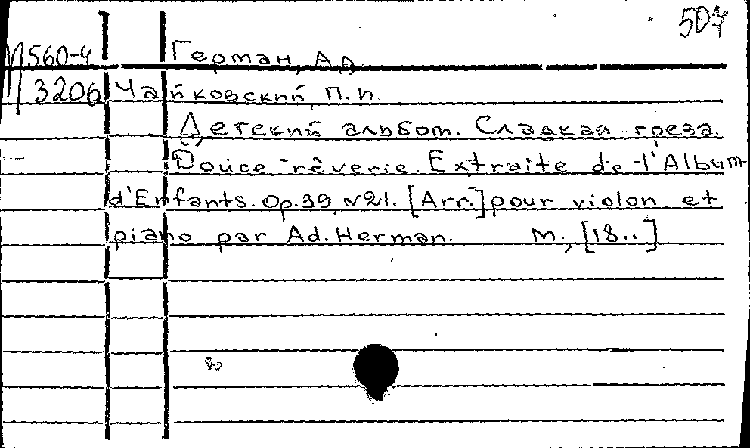 507
М560-4 Герман, Ад.
3206 Чайковский, П.И.
Детский альбом. Сладкая греза.
Douce rêverie. Extraite de l'Album
d'Enfants. Op.39 №21. [Arr.] pour violon et
piano par Ad. Herman. М., [18..]